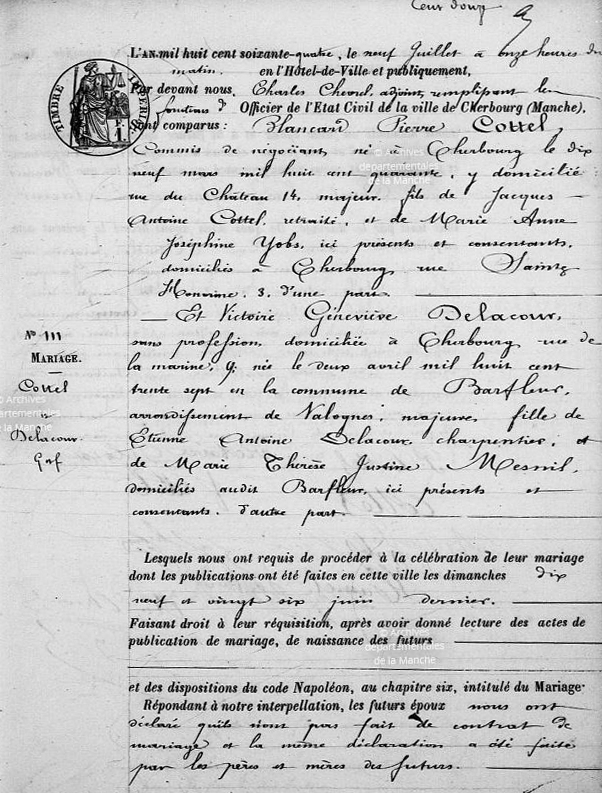 L'AN mil huit cent soixante-quatre, le neuf Juillet à onze heures du
matin, en l'Hôtel-de-Ville et publiquement,
Par devant nous, Charles Chevrel, adjoint, remplissant les
fonctions d' Officier de l'Etat Civil de la ville de Cherbourg (Manche).
Sont comparus : Blancard Pierre Cottel,
Commis de négociant, né à Cherbourg le dix
neuf mars mil huit cent quarante, y domicilié
rue du Château 14, majeur, fils de Jacques
Antoine Cottel, retraité, et de Marie Anne
Joséphine Yobs, ici présents et consentants,
domiciliés à Cherbourg rue Sainte
Honorine, 3, d'une part
Et Victoire Géneviève Delacour,
sans profession, domiciliée à Cherbourg rue de
la marine, 9, née le deux avril mil huit cent
trente sept en la commune de Barfleur,
arrondissement de Valognes, majeure, fille de
Etienne Antoine Delacour, charpentier, et
de Marie Thérèse Justine Mesnil,
domiciliés audit Barfleur, ici présents et
consentants, d'autre part
Nº 111
MARIAGE.
Cottel
&
Delacour
TIMBRE IMPERIAL
F. 1
Lesquels nous ont requis de procéder à la célébration de leur mariage
dont les publications ont été faites en cette ville les dimanches dix
neuf et vingt six juin dernier.
Faisant droit à leur réquisition, après avoir donné lecture des actes de
publication de mariage, de naissance des futurs
et des dispositions du code Napoléon, au chapitre six, intitulé du Mariage
Répondant à notre interpellation, les futurs époux nous ont
déclaré qu'ils n'ont pas fait de contrat de
mariage et la même déclaration a été faite
par les pères et mères des futurs.
© Archives
départementales
de la Manche
© Archives
départementales
de la Manche
© Archives
départementales
de la Manche